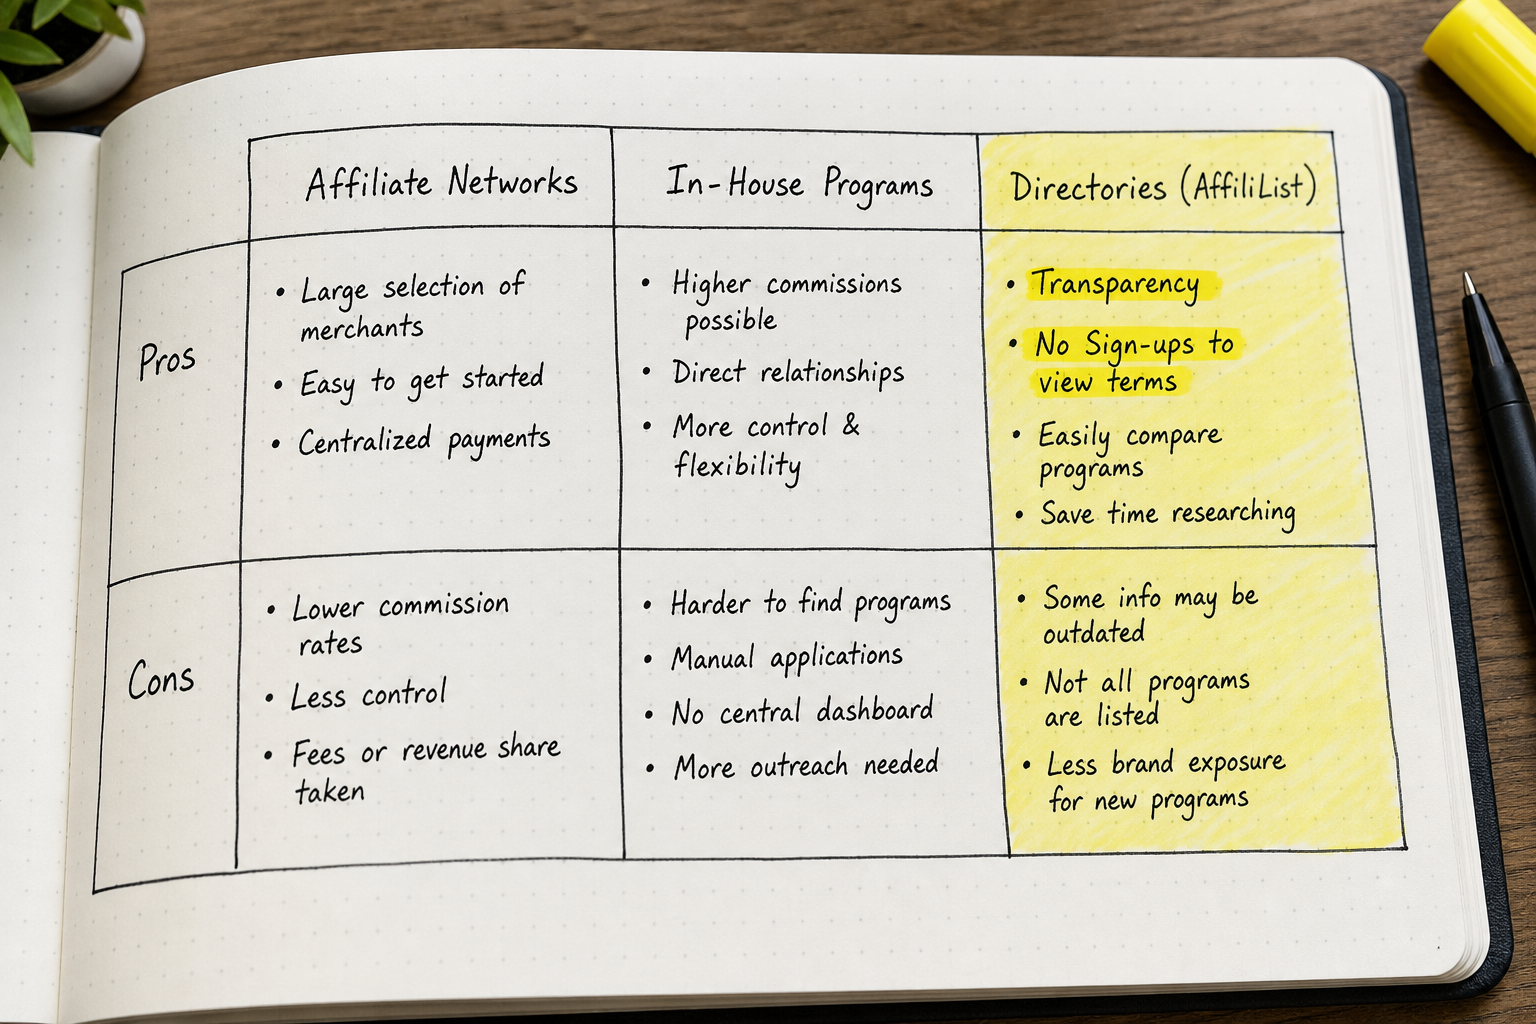 Affiliate Networks
In-House Programs
Directories (AffiliList)
Pros
• Large selection of
merchants
• Easy to get started
• Centralized payments
• Higher commissions
possible
• Direct relationships
• More control &
flexibility
• Transparency
• No Sign-ups to
view terms
• Easily compare
programs
• Save time researching
Cons
• Lower commission
rates
• Less control
• Fees or revenue share
taken
• Harder to find programs
• Manual applications
• No central dashboard
• More outreach needed
• Some info may be
outdated
• Not all programs
are listed
• Less brand exposure
for new programs